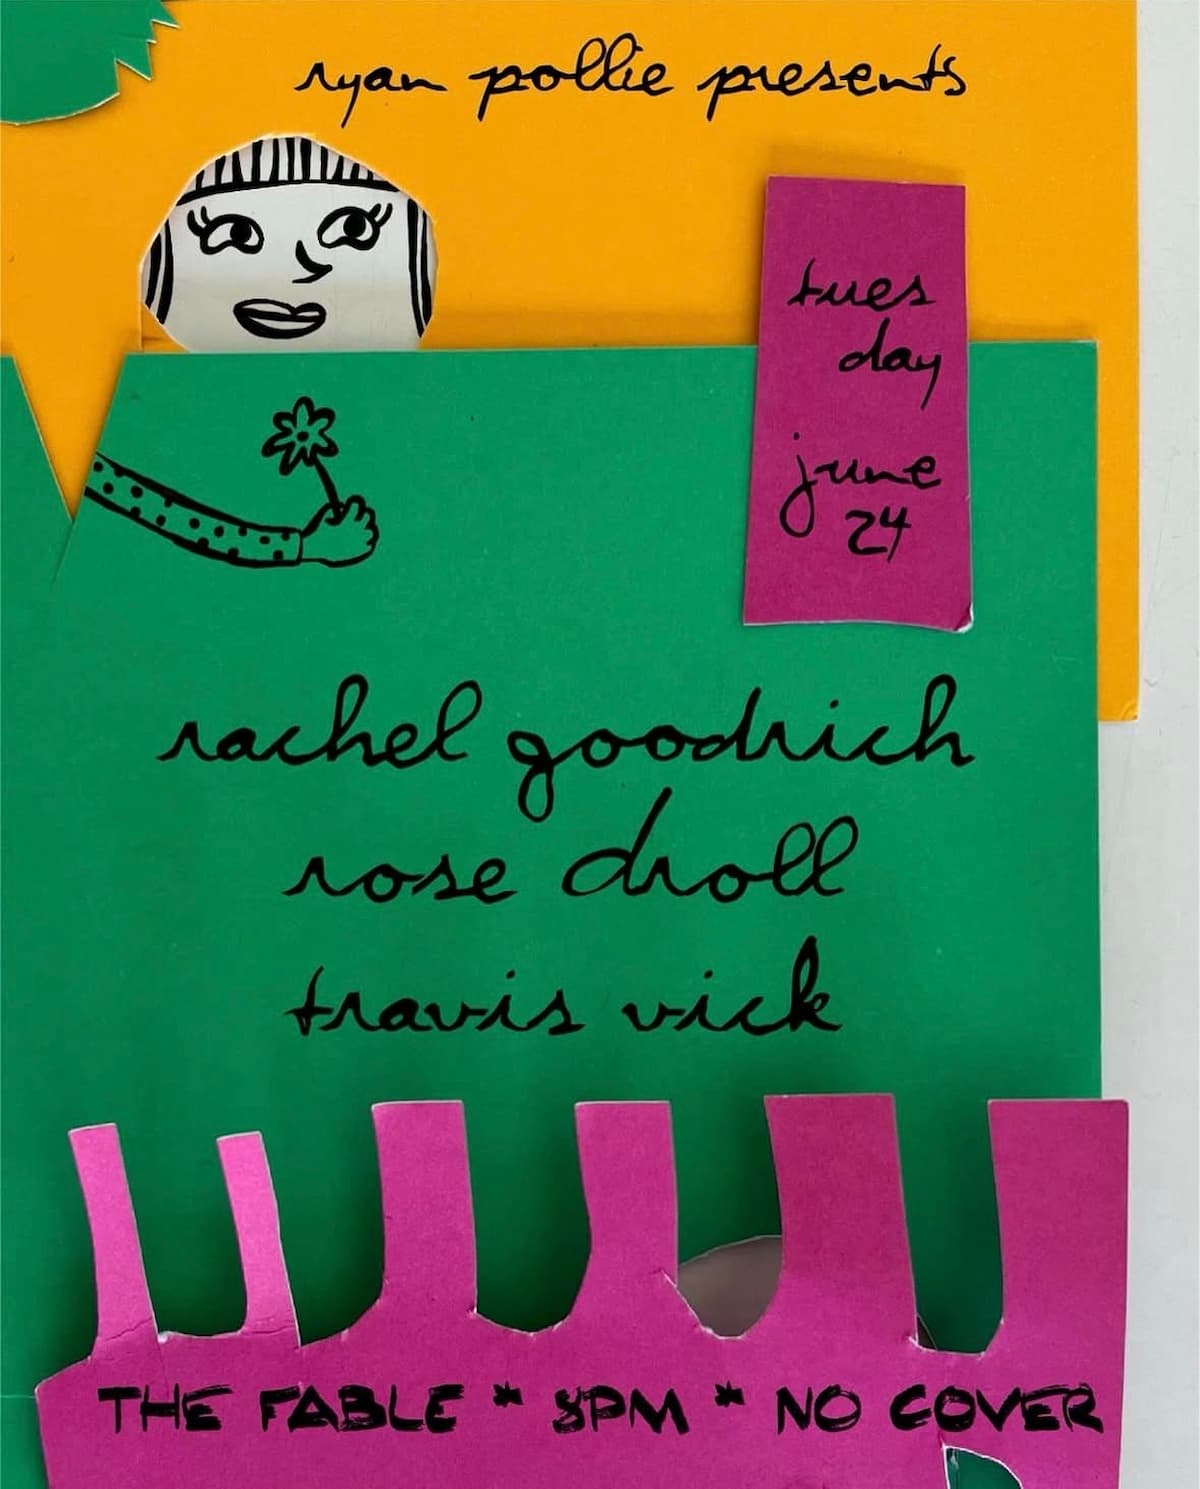 ryan pollie presents
tues
day
june
24
rachel goodrich
rose droll
travis vick
THE FABLE * 8PM * NO COVER